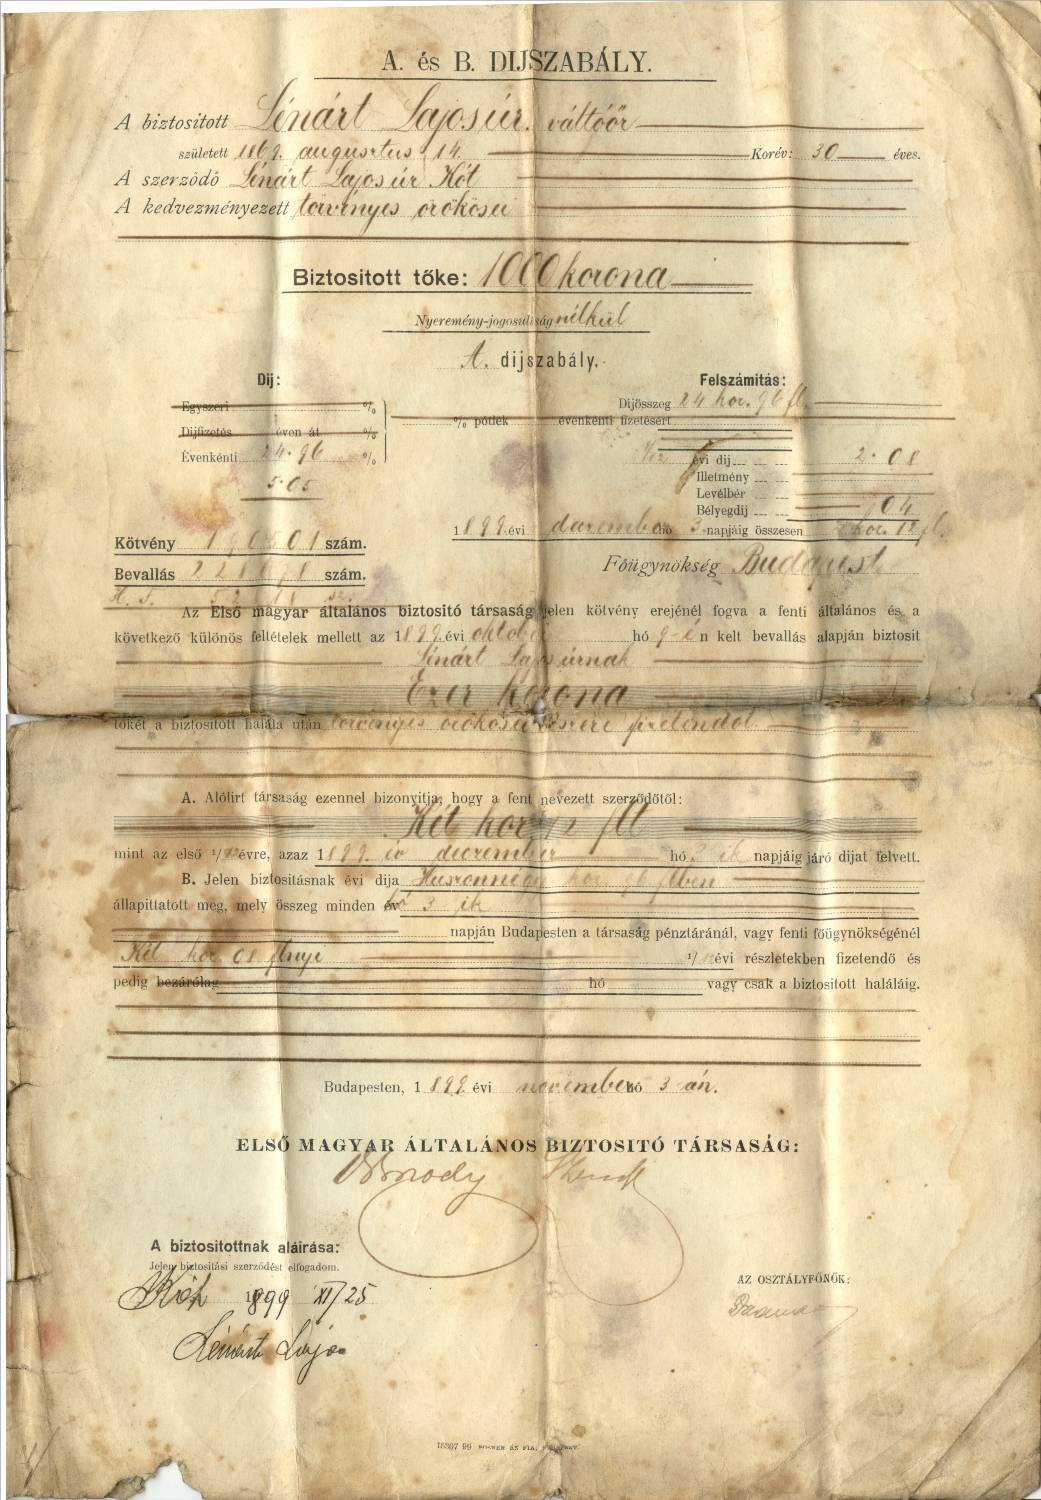 A. és B. DIJSZABÁLY.
A biztositott Lénárt Lajos úr. váltóőr
született 1869. augusztus 14. Korév: 30 éves.
A szerződő Lénárt Lajos úr Kót
A kedvezményezett törvényes örökösei
Biztositott tőke: 1000 korona
Nyeremény-jogosultság nélkül
A. dijszabály.
Dij: Felszámitás:
Egyszeri % Dijösszeg 24 kor. 96 fl.
% pótlék évenkénti fizetésért
Dijfizetés éven át %
Évenkénti 24.96 %
évi dij 2.08
5.05
Illetmény
Levélbér
Bélyegdij 04
1899. évi december hó 3. napjáig összesen 2 kor. 12 fl.
Kötvény 190501 szám.
Főügynökség Budapest
Bevallás szám.
Az Első magyar általános biztositó társaság jelen kötvény erejénél fogva a fenti általános és a
következő különös feltételek mellett az 1899. évi október hó 9-én kelt bevallás alapján biztosit
Lénárt Lajos úrnak
Ezer korona
tőkét a biztositott halála után törvényes örökösei részére fizetendőt.
A. Alólirt társaság ezennel bizonyitja, hogy a fent nevezett szerződőtől:
Két kor. 12 fll
mint az első 1/12 évre, azaz 1899. év december hó 3 ik napjáig járó dijat felvett.
B. Jelen biztositásnak évi dija Huszonnégy kor 96 fllben
állapittatott meg, mely összeg minden év hó 3 ik
napján Budapesten a társaság pénztáránál, vagy fenti főügynökségénél
Két kor 08 fllnyi 1/12 évi részletekben fizetendő és
pedig bezárólag hó vagy csak a biztositott haláláig.
Budapesten, 1899. évi november hó 3-án.
ELSŐ MAGYAR ÁLTALÁNOS BIZTOSITÓ TÁRSASÁG:
A biztositottnak aláirása:
Jelen biztositási szerződést elfogadom.
AZ OSZTÁLYFŐNÖK:
1899 XI/25
Lénárt Lajos
18307 99